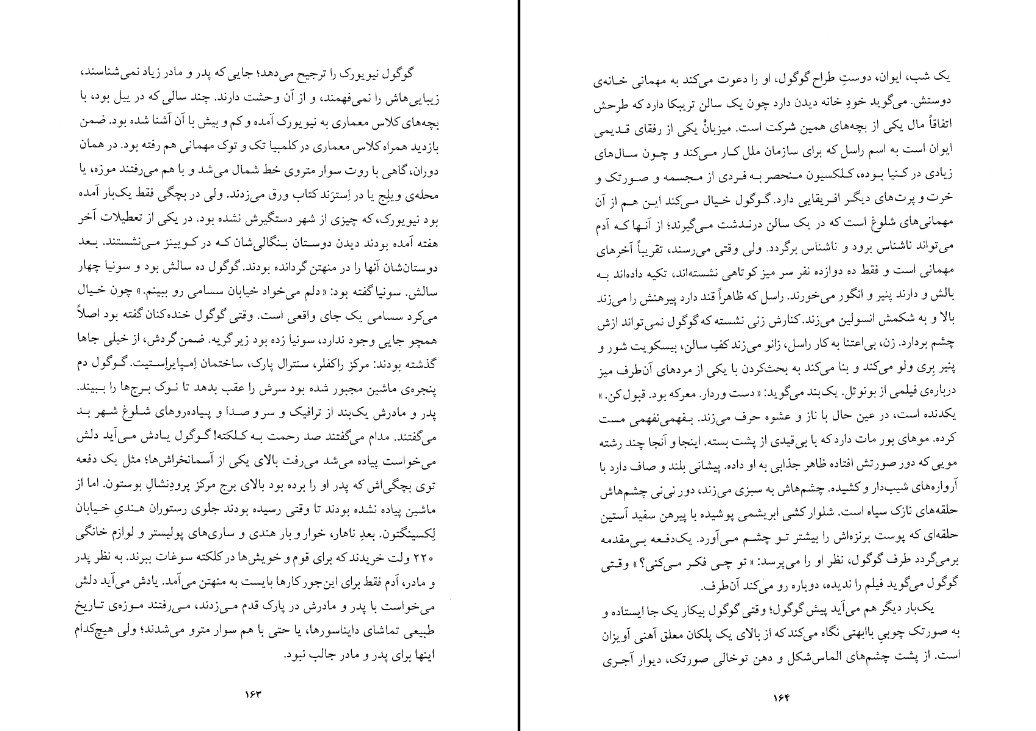 گوگول نیویورک را ترجیح می‌دهد؛ جایی که پدر و مادر زیاد نمی‌شناسند،
زیبایی‌هاش را نمی‌فهمند، و از آن وحشت دارند. چند سالی که در ییل بود، با
بچه‌های کلاس معماری به نیویورک آمده و کم و بیش با آن آشنا شده بود. ضمن
بازدید همراه کلاس معماری در کلمبیا تک و توک مهمانی هم رفته بود. در همان
دوران، گاهی با روت سوار متروی خط شمال می‌شد و با هم می‌رفتند موزه، یا
محله‌ی ویلِج یا در اِستِرَند کتاب ورق می‌زدند. ولی در بچگی فقط یک‌بار آمده
بود نیویورک، که چیزی از شهر دستگیرش نشده بود. در یکی از تعطیلات آخر
هفته آمده بودند دیدن دوستان بنگالی‌شان که در کویینز می‌نشستند. بعد
دوستان‌شان آنها را در منهتن گردانده بودند. گوگول ده سالش بود و سونیا چهار
سالش. سونیا گفته بود: «دلم می‌خواد خیابان سسامی رو ببینم.» چون خیال
می‌کرد سسامی یک جای واقعی است. وقتی گوگول خنده‌کنان گفته بود اصلاً
همچو جایی وجود ندارد، سونیا زده بود زیر گریه. ضمن گردش، از خیلی جاها
گذشته بودند: مرکز راکفلر، سنترال پارک، ساختمان اِمپایراِستیت. گوگول دم
پنجره‌ی ماشین مجبور شده بود سرش را عقب بدهد تا نوک برج‌ها را ببیند.
پدر و مادرش یک‌بند از ترافیک و سر و صدا و پیاده‌روهای شلوغ شهر بد
می‌گفتند. مدام می‌گفتند صد رحمت به کلکته! گوگول یادش می‌آید دلش
می‌خواست پیاده می‌شد می‌رفت بالای یکی از آسمانخراش‌ها؛ مثل یک دفعه
توی بچگی‌اش که پدر او را برده بود بالای برج مرکز پرودِنشالِ بوستون. اما از
ماشین پیاده نشده بودند تا وقتی رسیده بودند جلوی رستوران هندیِ خیابان
لِکسینگتون. بعدِ ناهار، خوار و بار هندی و ساری‌های پولیستر و لوازم خانگی
۲۲۰ ولت خریدند که برای قوم و خویش‌ها در کلکته سوغات ببرند. به نظر پدر
و مادر، آدم فقط برای این‌جور کارها بایست به منهتن می‌آمد. یادش می‌آید دلش
می‌خواست با پدر و مادرش در پارک قدم می‌زدند، می‌رفتند موزه‌ی تاریخ
طبیعی تماشای دایناسورها، یا حتی با هم سوار مترو می‌شدند؛ ولی هیچ‌کدام
اینها برای پدر و مادر جالب نبود.
۱۶۳
یک شب، ایوان، دوستِ طراح گوگول، او را دعوت می‌کند به مهمانی خانه‌ی
دوستش. می‌گوید خودِ خانه دیدن دارد چون یک سالن تریبکا دارد که طرحش
اتفاقاً مال یکی از بچه‌های همین شرکت است. میزبانْ یکی از رفقای قدیمی
ایوان است به اسم راسل که برای سازمان ملل کار می‌کند و چون سال‌های
زیادی در کنیا بوده، کلکسیون منحصر به فردی از مجسمه و صورتک و
خرت و پرت‌های دیگر افریقایی دارد. گوگول خیال می‌کند این هم از آن
مهمانی‌های شلوغ است که در یک سالن درندشت می‌گیرند؛ از آنها که آدم
می‌تواند ناشناس برود و ناشناس برگردد. ولی وقتی می‌رسند، تقریباً آخرهای
مهمانی است و فقط ده دوازده نفر سر میز کوتاهی نشسته‌اند، تکیه داده‌اند به
بالش و دارند پنیر و انگور می‌خورند. راسل که ظاهراً قند دارد پیرهنش را می‌زند
بالا و به شکمش انسولین می‌زند. کنارش زنی نشسته که گوگول نمی‌تواند ازش
چشم بردارد. زن، بی‌اعتنا به کار راسل، زانو می‌زند کفِ سالن، بیسکویت شور و
پنیر بِری ولو می‌کند و بنا می‌کند به بحث‌کردن با یکی از مردهای آن‌طرف میز
درباره‌ی فیلمی از بونوئل. یک‌بند می‌گوید: «دست وردار. معرکه بود. قبول کن.»
یکدنده است، در عین حال با ناز و عشوه حرف می‌زند. بفهمی‌نفهمی مست
کرده. موهای بور مات دارد که با بی‌قیدی از پشت بسته. اینجا و آنجا چند رشته
مویی که دور صورتش افتاده ظاهر جذابی به او داده. پیشانی بلند و صاف دارد با
آرواره‌های شیب‌دار و کشیده. چشم‌هاش به سبزی می‌زند، دور نی‌نی چشم‌هاش
حلقه‌های نازک سیاه است. شلوار کشی ابریشمی پوشیده با پیرهن سفید آستین
حلقه‌ای که پوست برنزه‌اش را بیشتر تو چشم می‌آورد. یک‌دفعه بی‌مقدمه
برمی‌گردد طرف گوگول، نظر او را می‌پرسد: «تو چی فکر می‌کنی؟» وقتی
گوگول می‌گوید فیلم را ندیده، دوباره رو می‌کند آن‌طرف.
یک‌بار دیگر هم می‌آید پیش گوگول؛ وقتی گوگول بیکار یک جا ایستاده و
به صورتک چوبیِ باابهتی نگاه می‌کند که از بالای یک پلکان معلق آهنی آویزان
است. از پشت چشم‌های الماس‌شکل و دهن توخالی صورتک، دیوار آجری
۱۶۴